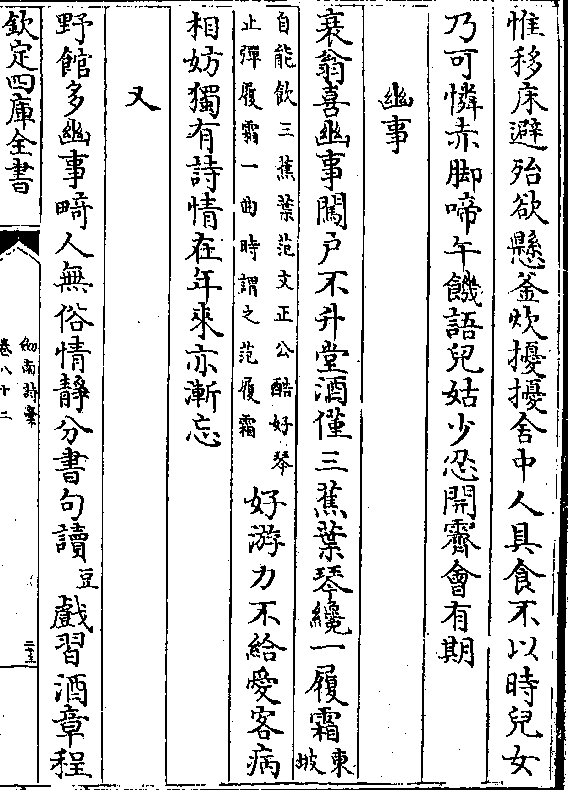 惟移床避殆欲懸釜炊擾擾舍中人具食不以時兒女
乃可憐赤脚啼午饑語兒姑少忍開霽會有期
幽事
衰翁喜幽事闔户不升堂酒僅三蕉葉琴纔一履霜東坡
自能飲三蕉葉范文正公酷好琴
止彈履霜一曲時謂之范履霜
好游力不給愛客病
相妨獨有詩情在年來亦漸忘
又
野館多幽事畸人無俗情靜分書句讀豆戲習酒章程
欽定四庫全書
劒南詩稾
卷八十二
二十三